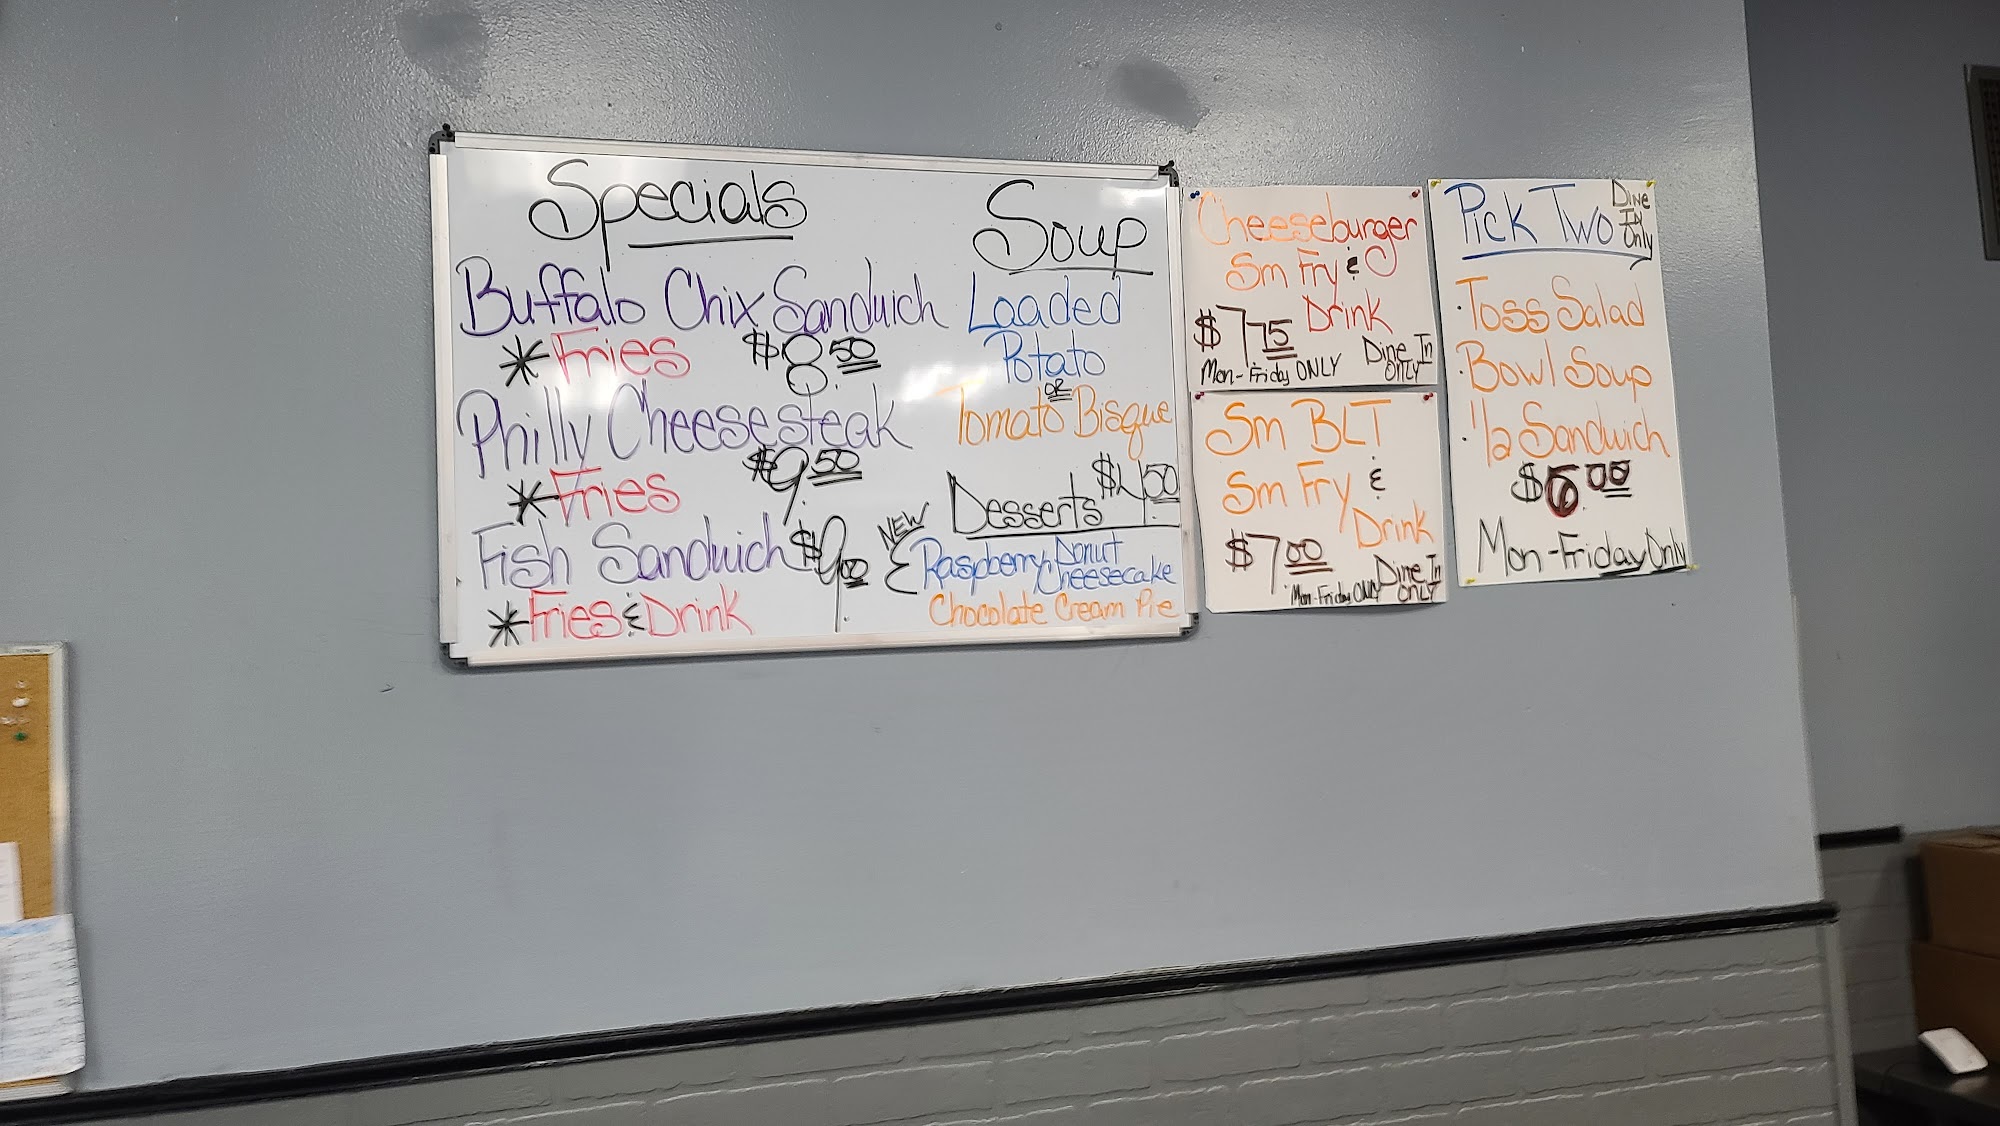 Specials
Buffalo Chix Sandwich
* Fries $8.50
Philly Cheesesteak
$9.50
* Fries
Fish Sandwich $9.00
* Fries & Drink
Soup
Loaded
Potato
OR
Tomato Bisque
$4.50
Desserts
NEW
Raspberry Donut
Cheesecake
Chocolate Cream Pie
Cheeseburger
Sm Fry &
Drink
$7.75
Mon-Friday ONLY
Dine In
ONLY
Sm BLT
Sm Fry &
Drink
$7.00
Mon-Friday ONLY
Dine In
ONLY
Pick Two
Dine
In
Only
· Toss Salad
· Bowl Soup
· 1/2 Sandwich
$6.00
Mon-Friday Only